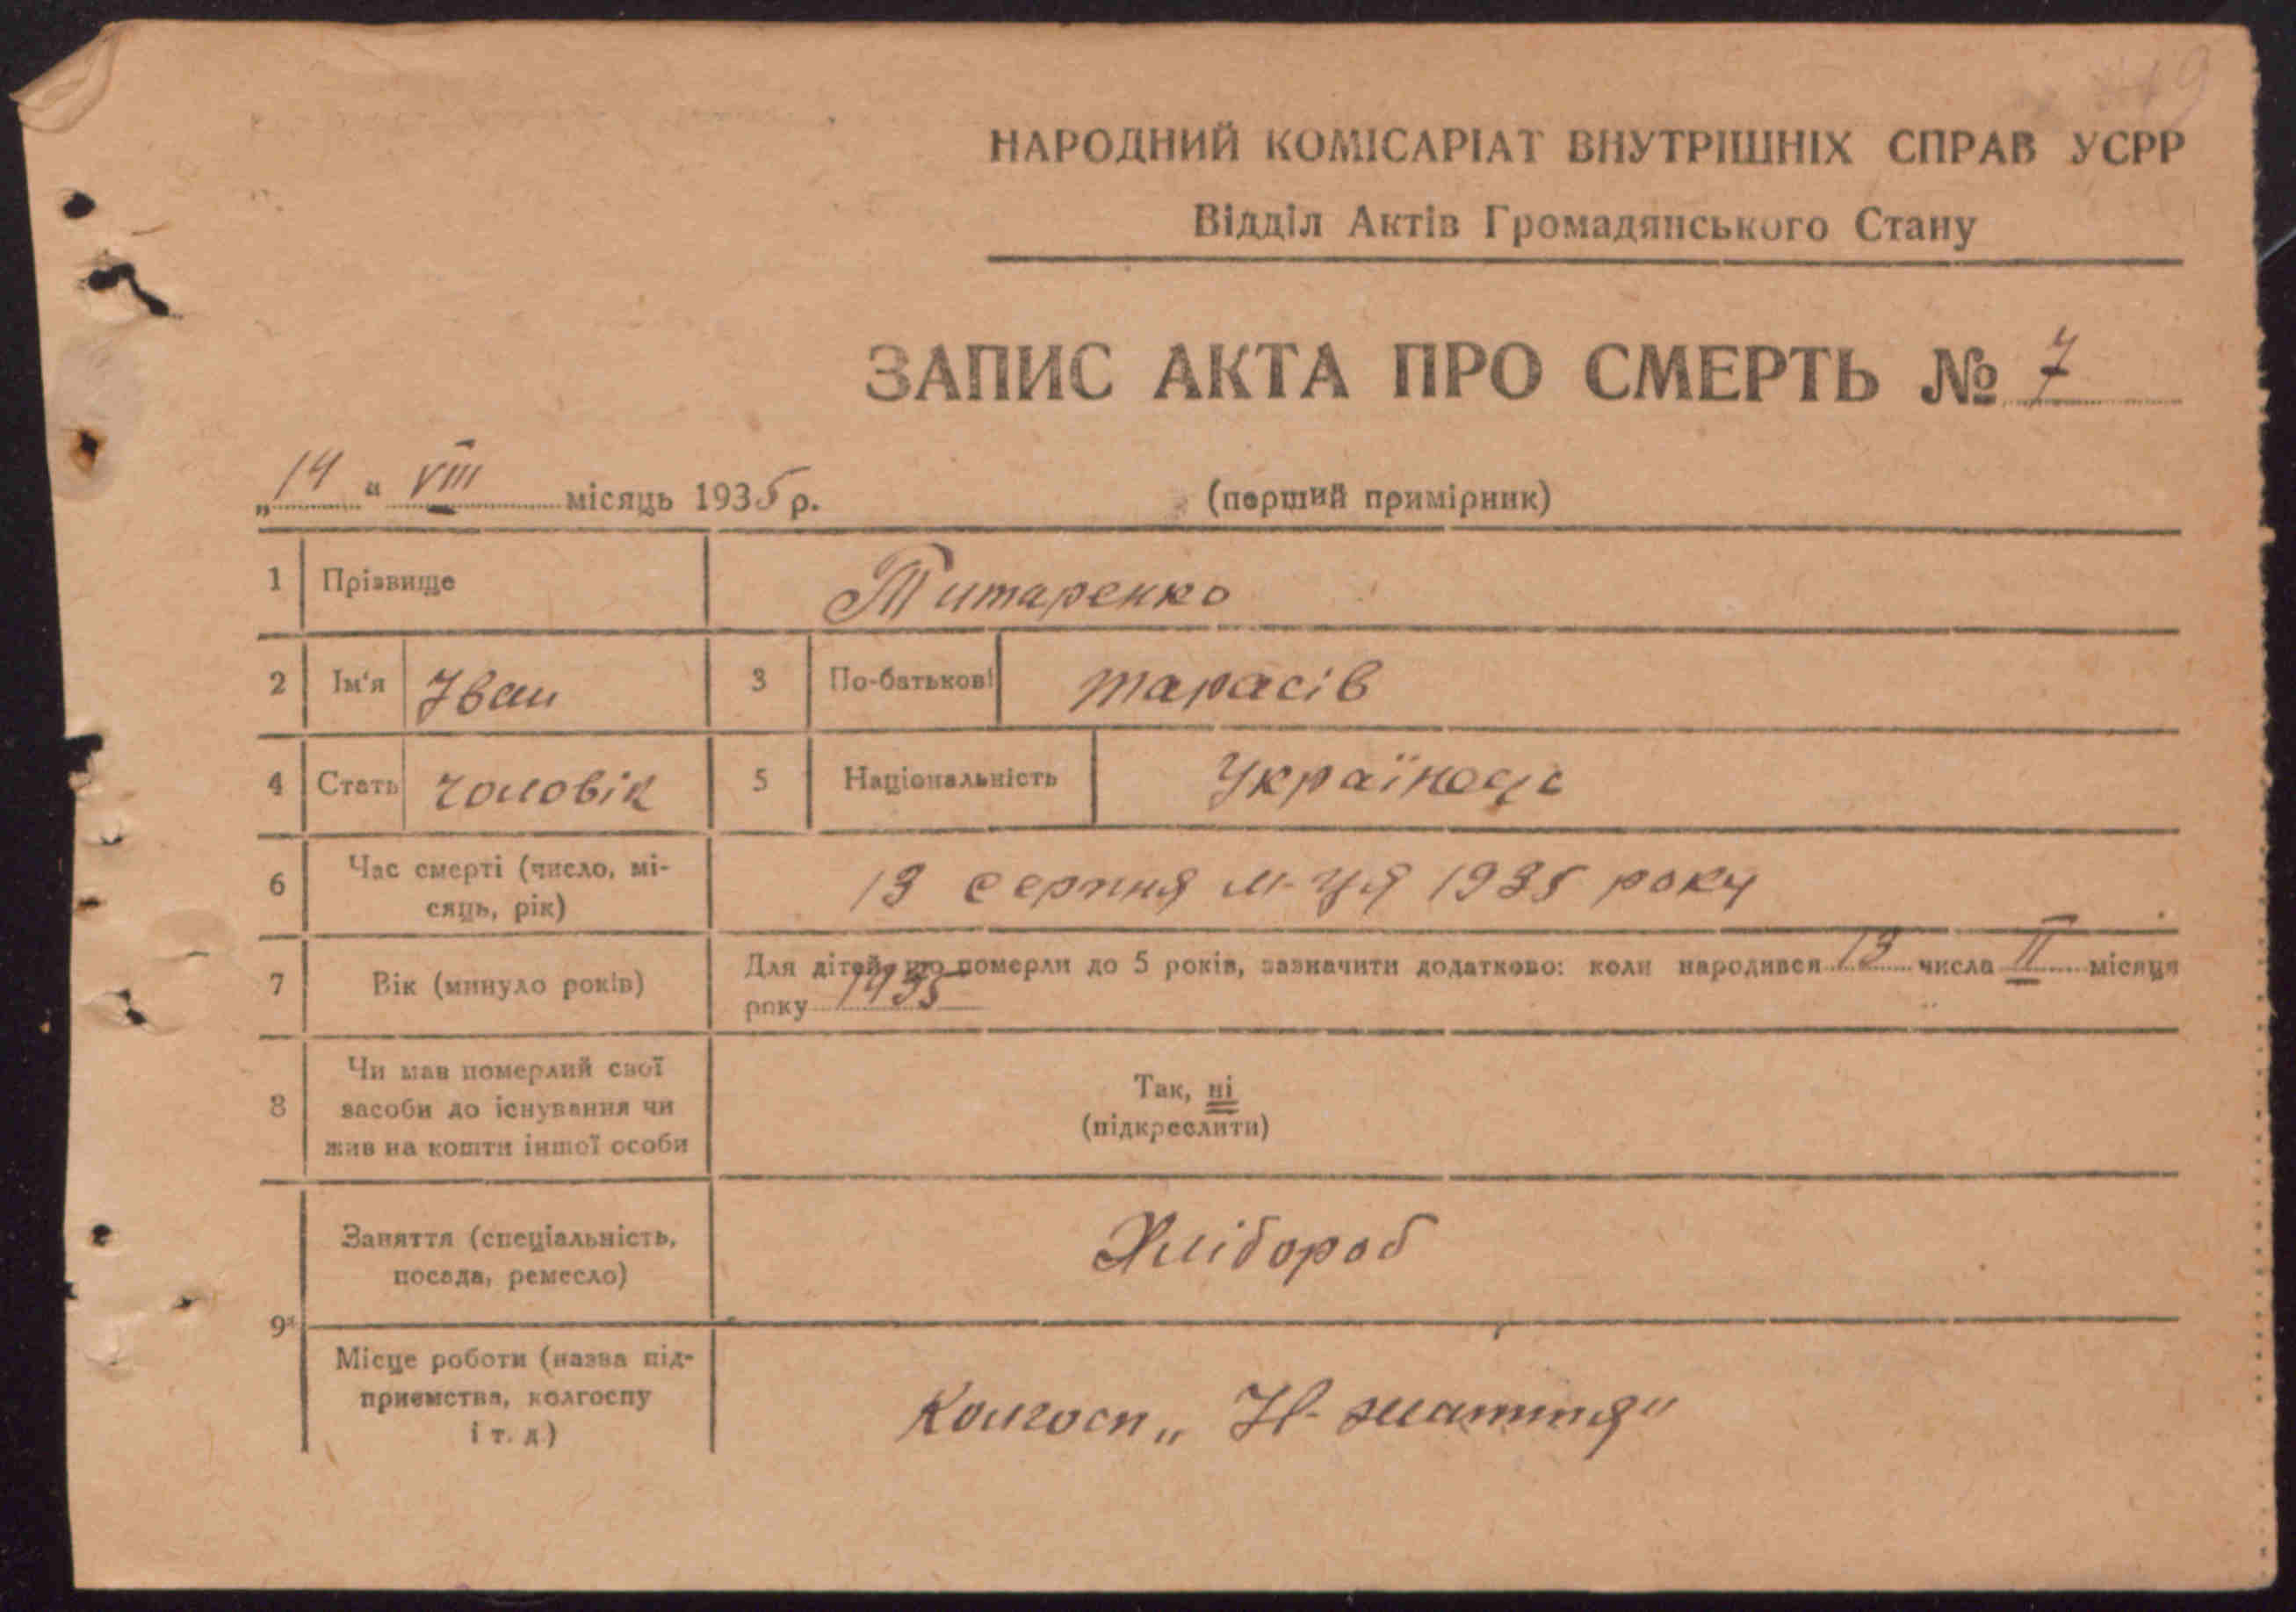 49
НАРОДНИЙ КОМІСАРІАТ ВНУТРІШНІХ СПРАВ УСРР
Відділ Актів Громадянського Стану
ЗАПИС АКТА ПРО СМЕРТЬ № 7
„14“ VIII місяць 1935 р. (перший примірник)
1 Прізвище Титаренко
2 Ім'я Іван 3 По-батькові тарасів
4 Стать чоловік 5 Національність Українець
6 Час смерті (число, мі-
сяць, рік) 13 серпня м-ця 1935 року
7 Вік (минуло років) Для дітей, що померли до 5 років, зазначити додатково: коли народився 13 числа II місяця
року 1935
8 Чи мав померлий свої
засоби до існування чи
жив на кошти іншої особи
Так, ні
(підкреслити)
9 Заняття (спеціальність,
посада, ремесло) Хлібороб
Місце роботи (назва під-
приємства, колгоспу
і т. д.) Колгосп „Н-життя"